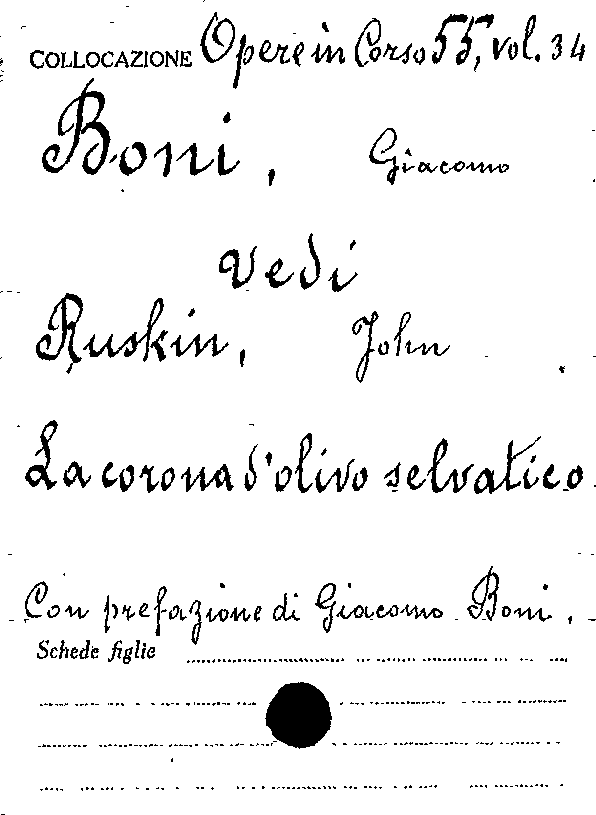 COLLOCAZIONE Opere in Corso 55, vol. 34
Boni, Giacomo
Vedi
Ruskin, John
La corona d'olivo selvatico
Con prefazione di Giacomo Boni.
Schede figlie